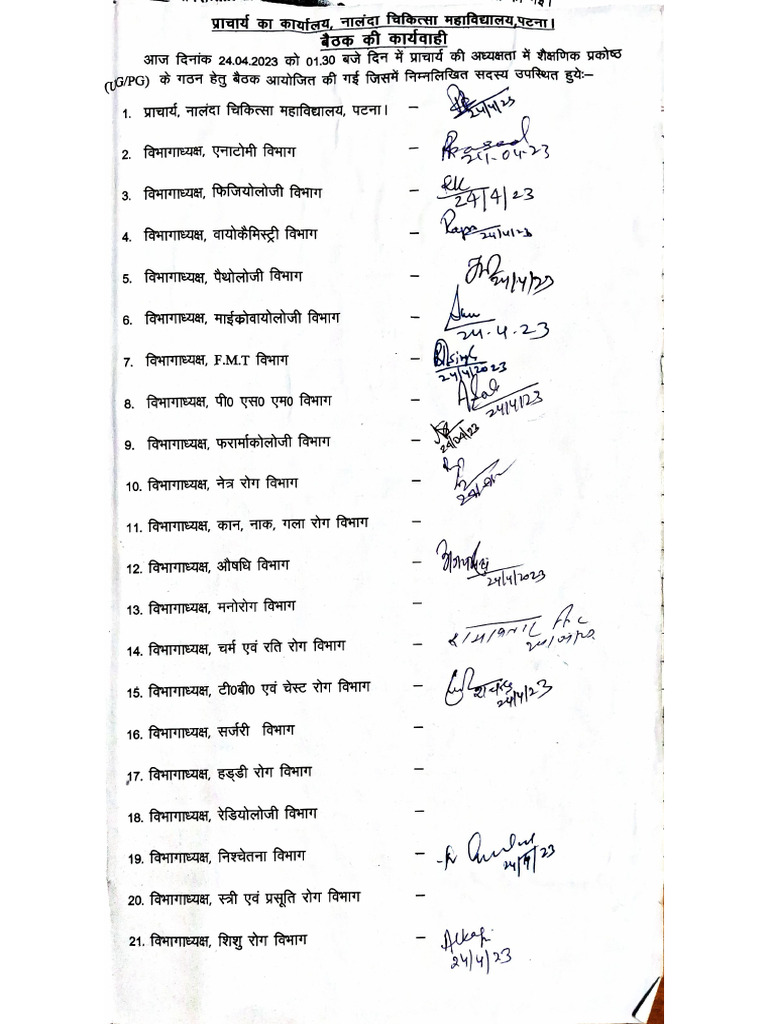 प्राचार्य का कार्यालय, नालंदा चिकित्सा महाविद्यालय,पटना।
बैठक की कार्यवाही
आज दिनांक 24.04.2023 को 01.30 बजे दिन में प्राचार्य की अध्यक्षता में शैक्षणिक प्रकोष्ठ
(UG/PG) के गठन हेतु बैठक आयोजित की गई जिसमें निम्नलिखित सदस्य उपस्थित हुयेः–
1. प्राचार्य, नालंदा चिकित्सा महाविद्यालय, पटना। – 24/4/23
2. विभागाध्यक्ष, एनाटोमी विभाग – 24-04-23
3. विभागाध्यक्ष, फिजियोलोजी विभाग – RK 24/4/23
4. विभागाध्यक्ष, वायोकैमिस्ट्री विभाग – 24/4/23
5. विभागाध्यक्ष, पैथोलोजी विभाग – 24/4/23
6. विभागाध्यक्ष, माईकोवायोलोजी विभाग – 24-4-23
7. विभागाध्यक्ष, F.M.T विभाग – 24/4/2023
8. विभागाध्यक्ष, पी0 एस0 एम0 विभाग – 24/4/23
9. विभागाध्यक्ष, फरार्माकोलोजी विभाग – 24/04/23
10. विभागाध्यक्ष, नेत्र रोग विभाग –
11. विभागाध्यक्ष, कान, नाक, गला रोग विभाग –
12. विभागाध्यक्ष, औषधि विभाग – 24/4/2023
13. विभागाध्यक्ष, मनोरोग विभाग –
14. विभागाध्यक्ष, चर्म एवं रति रोग विभाग –
15. विभागाध्यक्ष, टी0बी0 एवं चेस्ट रोग विभाग – 24/4/23
16. विभागाध्यक्ष, सर्जरी विभाग –
17. विभागाध्यक्ष, हड्डी रोग विभाग –
18. विभागाध्यक्ष, रेडियोलोजी विभाग –
19. विभागाध्यक्ष, निश्चेतना विभाग – 24/4/23
20. विभागाध्यक्ष, स्त्री एवं प्रसूति रोग विभाग –
21. विभागाध्यक्ष, शिशु रोग विभाग – 24/4/23